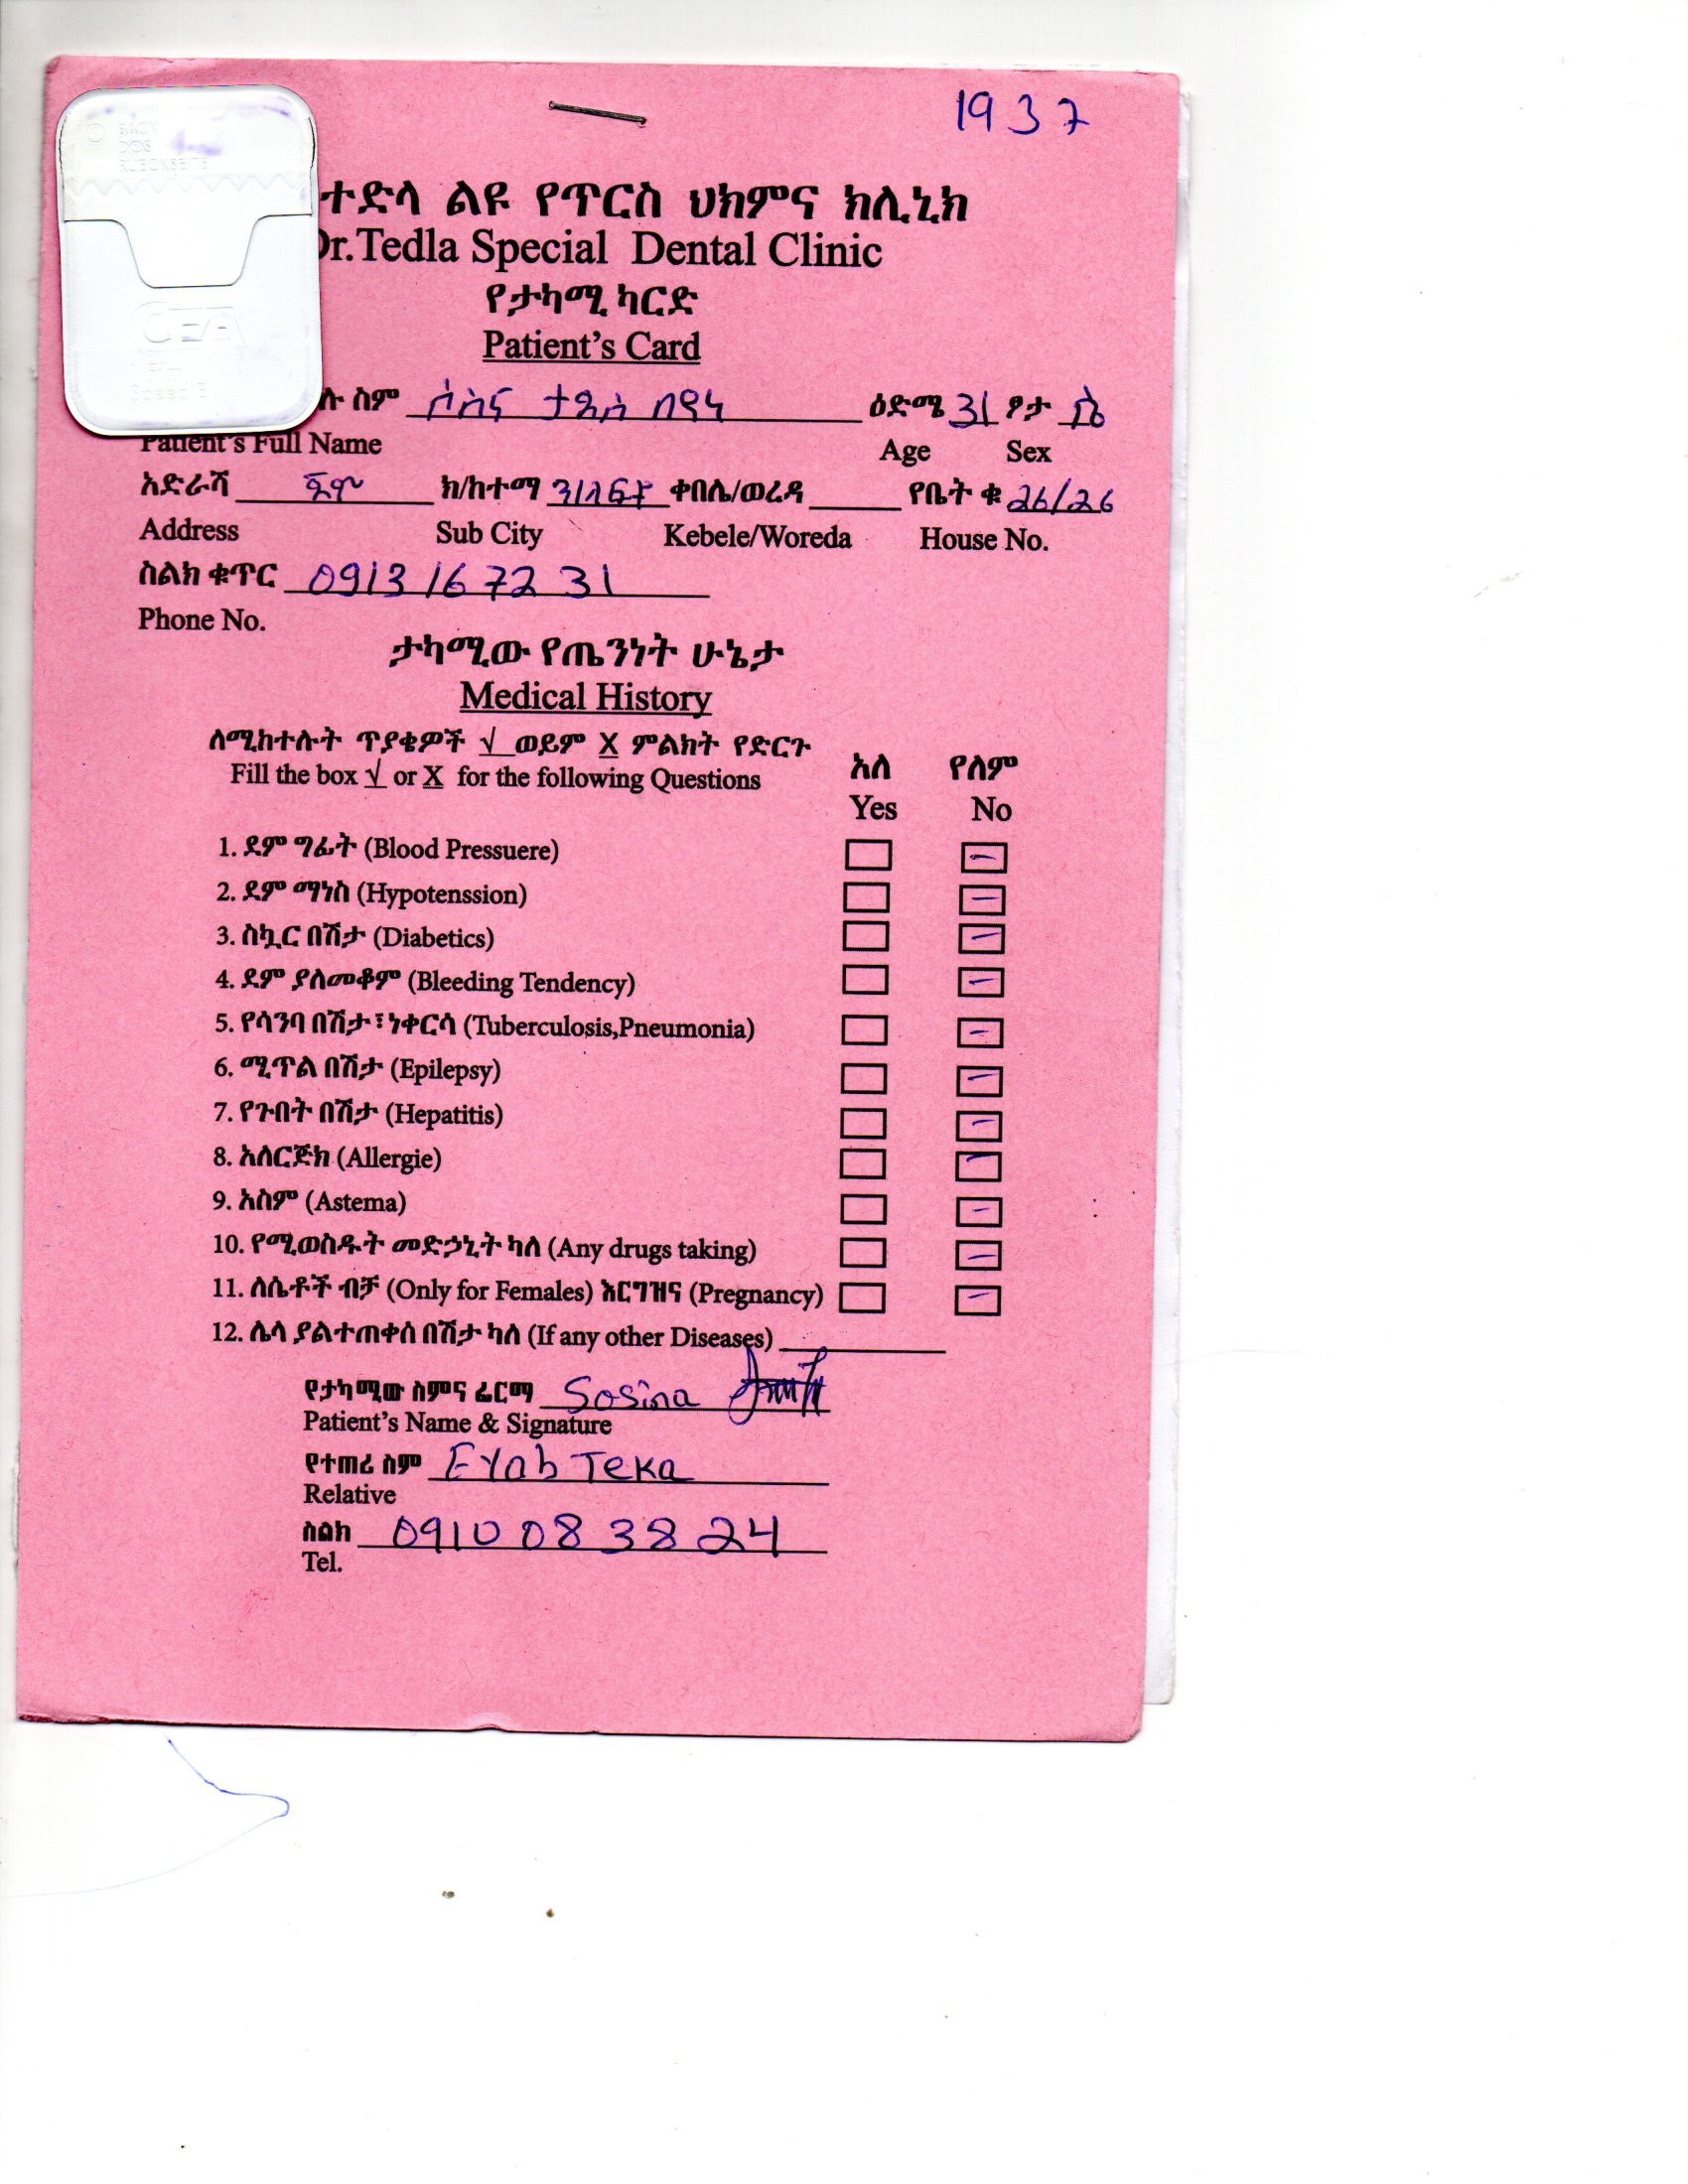 1937
BACK
DOS
RUECKSEITE
CEA
ተድላ ልዩ የጥርስ ህክምና ክሊኒክ
Dr.Tedla Special Dental Clinic
የታካሚ ካርድ
Patient's Card
ሉ ስም ሶስና ታዲሰ በየነ ዕድሜ 31 ፆታ ሴ
Patient's Full Name Age Sex
አድራሻ ጅማ ክ/ከተማ ን/ስልክ ቀበሌ/ወረዳ የቤት ቁ 26/26
Address Sub City Kebele/Woreda House No.
ስልክ ቁጥር 0913 16 72 31
Phone No.
ታካሚው የጤንነት ሁኔታ
Medical History
ለሚከተሉት ጥያቄዎች √ ወይም X ምልክት የድርጉ
Fill the box √ or X for the following Questions
አለ የለም
Yes No
1. ደም ግፊት (Blood Pressuere) –
2. ደም ማነስ (Hypotenssion) –
3. ስኳር በሽታ (Diabetics) –
4. ደም ያለመቆም (Bleeding Tendency) –
5. የሳንባ በሽታ፣ ነቀርሳ (Tuberculosis,Pneumonia) –
6. ሚጥል በሽታ (Epilepsy) –
7. የጉበት በሽታ (Hepatitis) –
8. አለርጅክ (Allergie) –
9. አስም (Astema) –
10. የሚወስዱት መድኃኒት ካለ (Any drugs taking) –
11. ለሴቶች ብቻ (Only for Females) እርግዝና (Pregnancy) –
12. ሌላ ያልተጠቀሰ በሽታ ካለ (If any other Diseases)
የታካሚው ስምና ፊርማ Sosina
Patient's Name & Signature
የተጠሪ ስም Eyob Teka
Relative
ስልክ 0910 08 38 24
Tel.